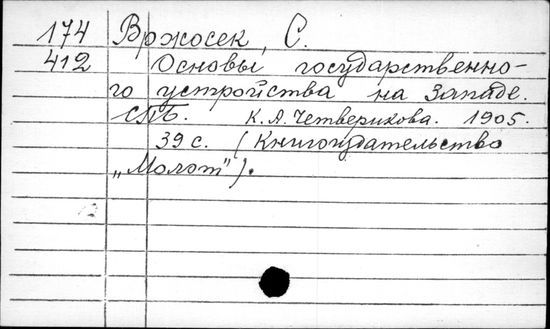 174 Вржосек, С.
412 Основы государственно-
го устройства на Западе.
СПБ. К.А.Четверикова. 1905.
39 с. (Книгоиздательство
„Молот").